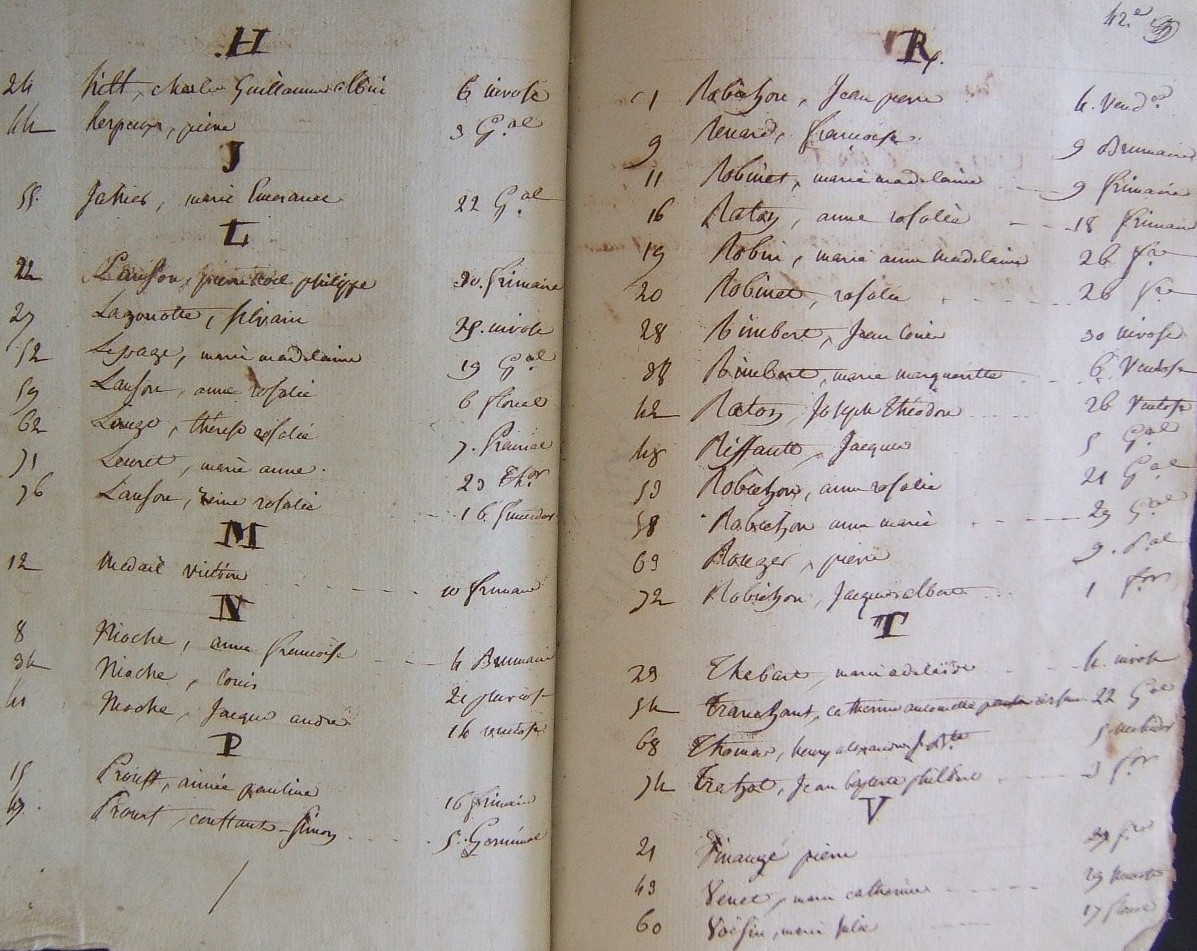 H
24 hitt, charles Guillaume albin 6 nivose
44 herpeux, pierre 3 G.al
J
55. Jahier, marie Emerance 22 G.al
L
22 Lanson, pierre noel philippe 30. frimaire
27 Lagouotte, silvain 25. nivose
52 Lepage, marie madelaine 19 G.al
59 Lanson, anne rosalie 6 floreal
62 Lauzo, thérese rosalie 7. Prairial
71 Louret, marie anne. 23 Th.or
76 Lanson, reine rosalie 16 fructidor
M
12 Medail victoire 10 frimaire
N
8 Nioche, anne francoise 4 Brumaire
34 Nioche, louis 21 pluviose
41 Nioche, Jacque andré 14 ventose
P
15 Proust, aimée pauline 16 frimaire
47. Proust, constant Simon 5. Germinal
42.e
R.
1 Robichon, Jean pierre 4. Vend.e
9 Renard, francoise. 9 Brumaire
11 Robinet, marie madelaine 9 frimaire
16 Raton, anne rosalie 18 frimaire
19 Robin, marie anne madelaine 26 f.re
20 Robinet, rosalie 26 f.re
28 Rimbert, Jean louis 30 nivose
38 Rimbert, marie marguerite 6 Ventose
42 Raton, Joseph théodore 26 Ventose
48 Riffault, Jacque 5 G.al
53 Robichon, anne rosalie 21 G.al
58 Robichon anne marie 29 G.al
69 Rouger, pierre 9. P.al
72 Robichon, Jacques albert 1 f.or
T
23 Thebart, marie adelaïde 4. nivose
54 Tranchant, catherine antoinette 22 G.al
68 Thomas, henry alexandre J. B.te 5 messidor
74 Trahot, Jean baptiste philbert 3 f.or
V
21 Vinangé pierre 27 f.re
43 Venet, marie catherine 29 ventose
60 Voisin, marie julie 17 floreal